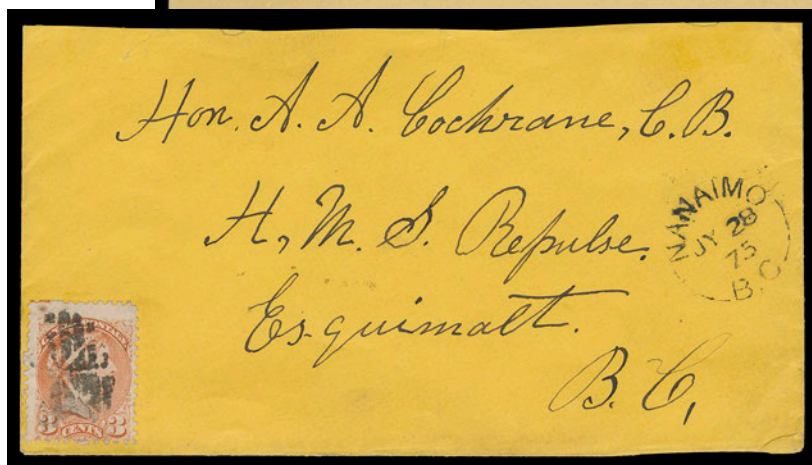 Hon. A. A. Cochrane, C. B.
H, M. S. Repulse.
Esquimalt.
B. C,
NANAIMO
JY 28
75
B.C
3 CENTS 3